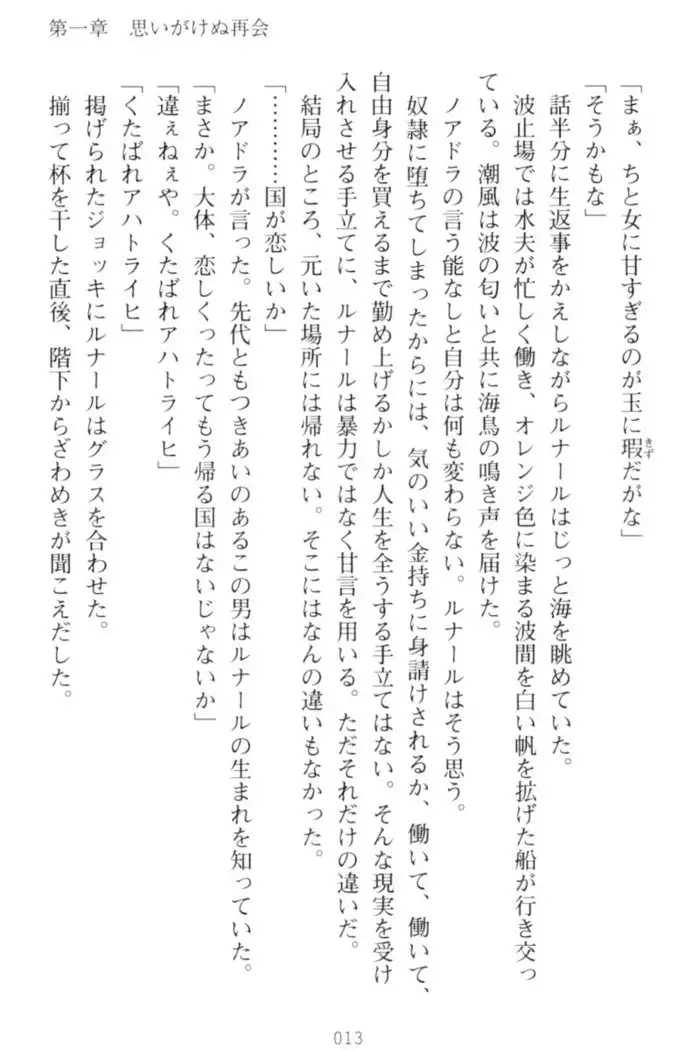 第一章　思いがけぬ再会
「まぁ、ちと女に甘すぎるのが玉に瑕だがな」
きず
「そうかもな」
　話半分に生返事をかえしながらルナールはじっと海を眺めていた。
　波止場では水夫が忙しく働き、オレンジ色に染まる波間を白い帆を拡げた船が行き交っ
ている。潮風は波の匂いと共に海鳥の鳴き声を届けた。
　ノアドラの言う能なしと自分は何も変わらない。ルナールはそう思う。
　奴隷に堕ちてしまったからには、気のいい金持ちに身請けされるか、働いて、働いて、
自由身分を買えるまで勤め上げるかしか人生を全うする手立てはない。そんな現実を受け
入れさせる手立てに、ルナールは暴力ではなく甘言を用いる。ただそれだけの違いだ。
　結局のところ、元いた場所には帰れない。そこにはなんの違いもなかった。
「…………国が恋しいか」
　ノアドラが言った。先代ともつきあいのあるこの男はルナールの生まれを知っていた。
「まさか。大体、恋しくったってもう帰る国はないじゃないか」
「違ぇねぇや。くたばれアハトライヒ」
「くたばれアハトライヒ」
　掲げられたジョッキにルナールはグラスを合わせた。
　揃って杯を干した直後、階下からざわめきが聞こえだした。
013